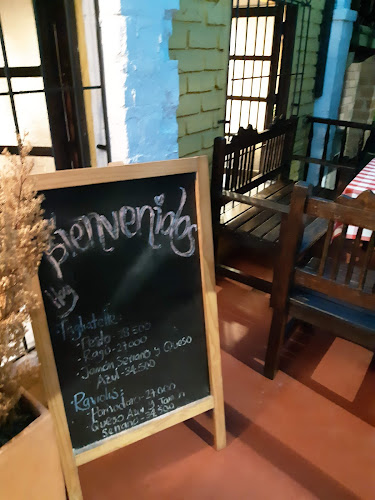 Bienvenidos
Hoy
Tagliatelle:
- Pesto - 28.500
- Ragú - 27.000
- Jamón Serrano y Queso
Azul - 34.500
Raviolis:
Pomodoro - 27.000
Queso Azul y Jamón
Serrano - 34.500